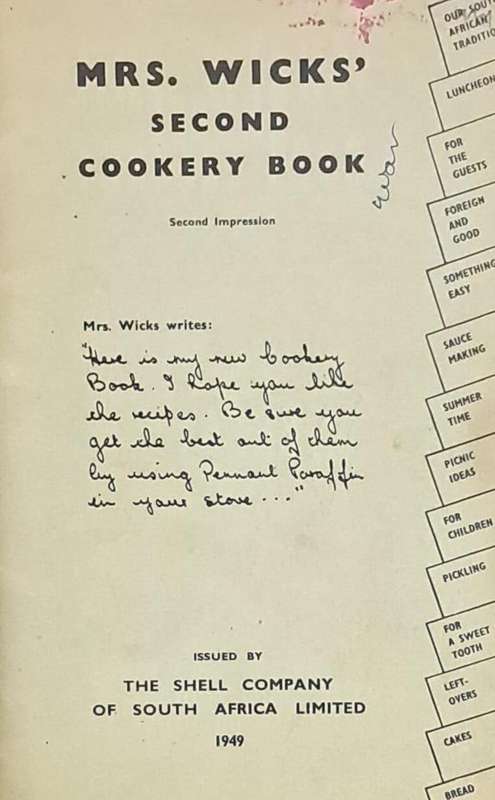 MRS. WICKS'
SECOND
COOKERY BOOK
Second Impression
Mrs. Wicks writes:
"Here is my new Cookery
Book. I hope you like
the recipes. Be sure you
get the best out of them
by using Pennant Paraffin
in your stove ..."
ISSUED BY
THE SHELL COMPANY
OF SOUTH AFRICA LIMITED
1949
OUR SOUTH
AFRICAN
TRADITIO
LUNCHEON
FOR
THE
GUESTS
FOREIGN
AND
GOOD
SOMETHING
EASY
SAUCE
MAKING
SUMMER
TIME
PICNIC
IDEAS
FOR
CHILDREN
PICKLING
FOR
A SWEET
TOOTH
LEFT-
OVERS
CAKES
BREAD